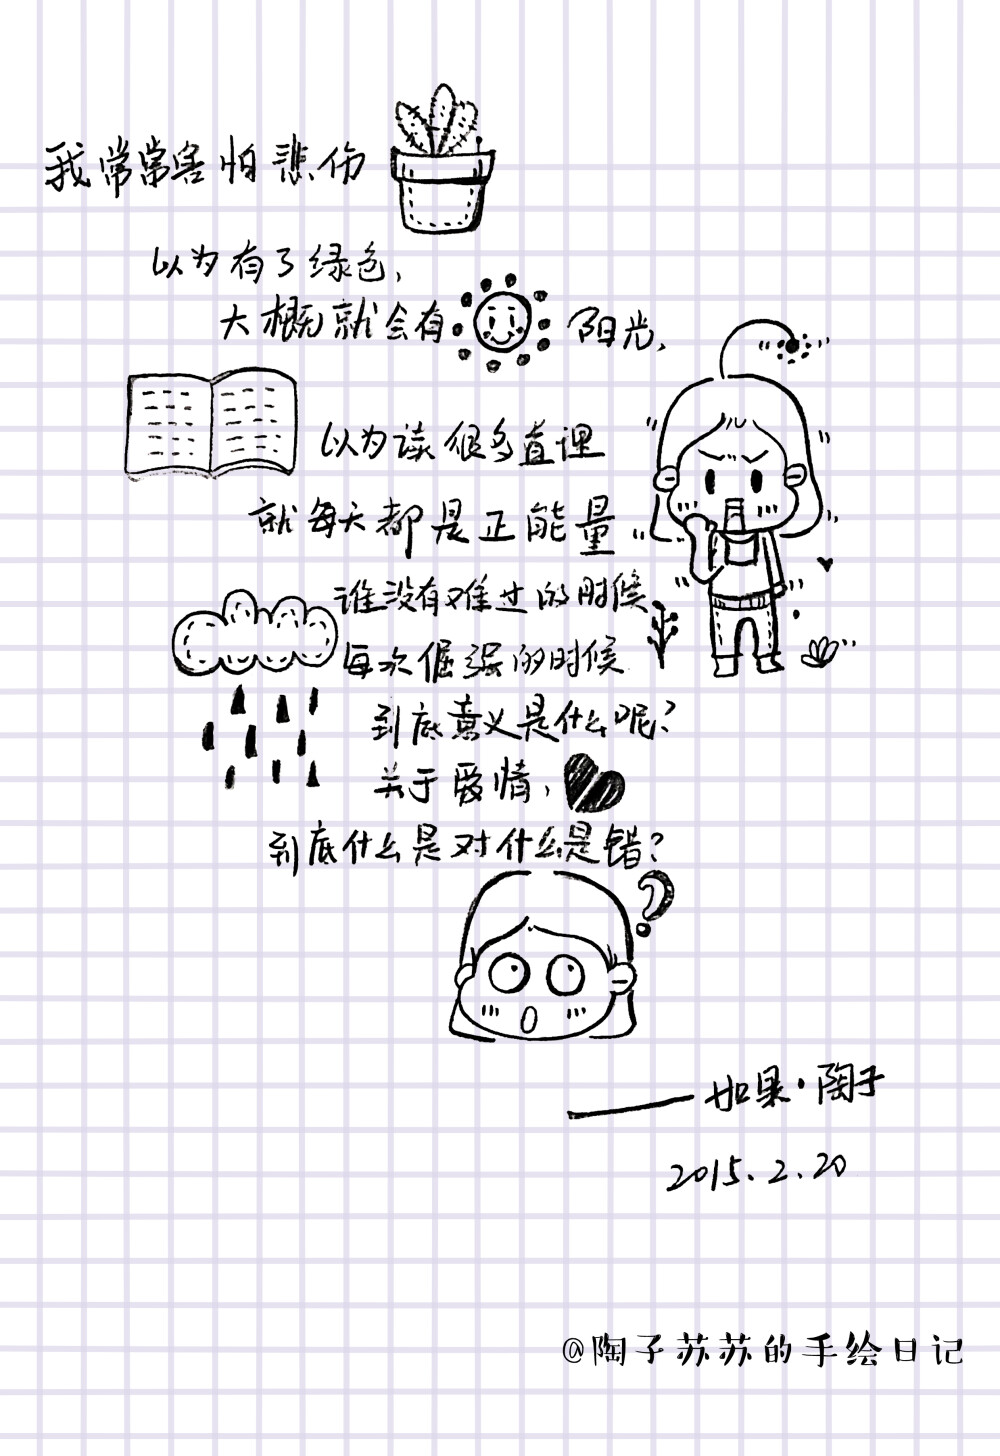 我常常害怕悲伤
以为有了绿色,
大概就会有 阳光,
以为读很多直理
就每天都是正能量
谁没有难过的时候
每次倔强的时候
到底意义是什么呢?
关于爱情,
到底什么是对什么是错?
?
——如果·陶子
2015.2.20
@陶子苏苏的手绘日记